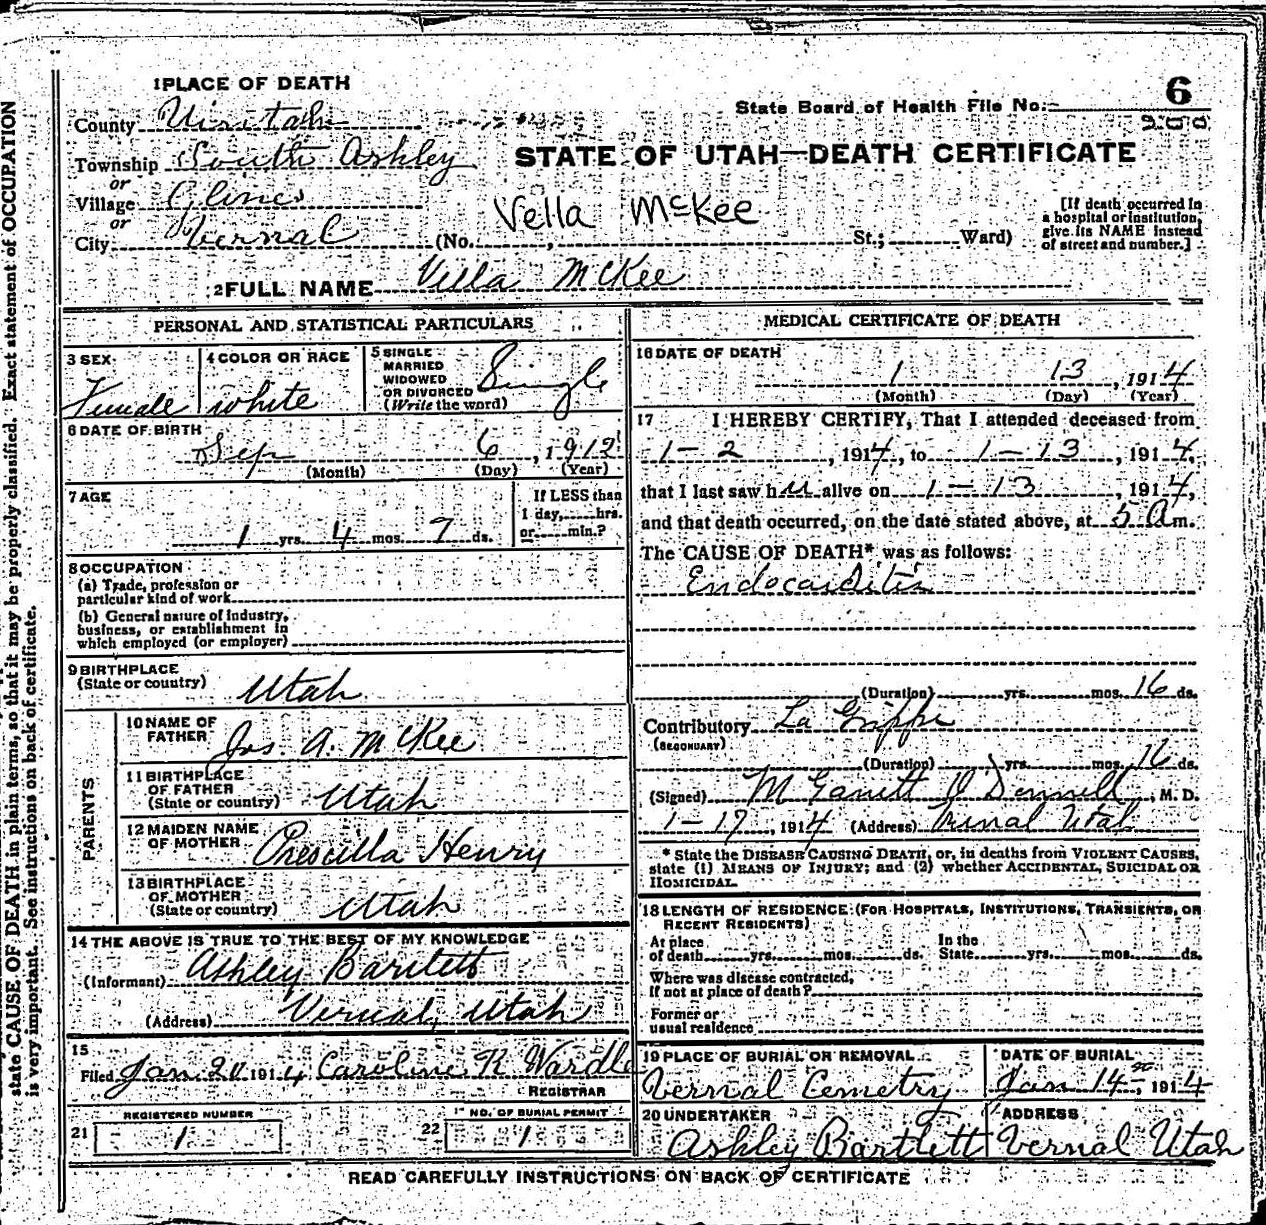 state CAUSE OF DEATH in plain terms, so that it may be properly classified. Exact statement of OCCUPATION
is very important. See instructions on back of certificate.
1 PLACE OF DEATH
6
State Board of Health File No.
County Uintah
STATE OF UTAH—DEATH CERTIFICATE
Township South Ashley
or
Village
or
City Vernal
Vella McKee
(No. , St.; Ward)
[If death occurred in
a hospital or institution,
give its NAME instead
of street and number.]
2 FULL NAME Villa McKee
PERSONAL AND STATISTICAL PARTICULARS
3 SEX
Female
4 COLOR OR RACE
white
5 SINGLE
MARRIED
WIDOWED
OR DIVORCED
(Write the word)
Single
6 DATE OF BIRTH
Sep 6, 1912
(Month) (Day) (Year)
7 AGE
1 yrs. 4 mos. 7 ds.
If LESS than
1 day, hrs.
or min.?
8 OCCUPATION
(a) Trade, profession or
particular kind of work
(b) General nature of industry,
business, or establishment in
which employed (or employer)
9 BIRTHPLACE
(State or country) Utah
PARENTS
10 NAME OF
FATHER Jas. A. McKee
11 BIRTHPLACE
OF FATHER
(State or country) Utah
12 MAIDEN NAME
OF MOTHER Prescilla Henry
13 BIRTHPLACE
OF MOTHER
(State or country) Utah
14 THE ABOVE IS TRUE TO THE BEST OF MY KNOWLEDGE
(Informant) Ashley Bartlett
(Address) Vernal, Utah
15
Filed Jan 20 1914 Caroline R Wardle
REGISTRAR
REGISTERED NUMBER
21 1
NO. OF BURIAL PERMIT
22 1
MEDICAL CERTIFICATE OF DEATH
16 DATE OF DEATH
1 13, 1914
(Month) (Day) (Year)
17 I HEREBY CERTIFY, That I attended deceased from
1-2, 1914, to 1-13, 1914,
that I last saw her alive on 1-13, 1914,
and that death occurred, on the date stated above, at 5 a m.
The CAUSE OF DEATH* was as follows:
Endocarditis
(Duration) yrs. mos. 16 ds.
Contributory La Grippe
(SECONDARY)
(Duration) yrs. mos. 16 ds.
(Signed) M Garrett O'Donnell, M. D.
1-17, 1914 (Address) Vernal Utah
* State the DISEASE CAUSING DEATH, or, in deaths from VIOLENT CAUSES,
state (1) MEANS OF INJURY; and (2) whether ACCIDENTAL, SUICIDAL OR
HOMICIDAL.
18 LENGTH OF RESIDENCE (FOR HOSPITALS, INSTITUTIONS, TRANSIENTS, OR
RECENT RESIDENTS)
At place
of death yrs. mos. ds.
In the
State yrs. mos. ds.
Where was disease contracted,
If not at place of death?
Former or
usual residence
19 PLACE OF BURIAL OR REMOVAL
Vernal Cemetry
DATE OF BURIAL
Jan 14, 1914
20 UNDERTAKER
Ashley Bartlett
ADDRESS
Vernal Utah
READ CAREFULLY INSTRUCTIONS ON BACK OF CERTIFICATE